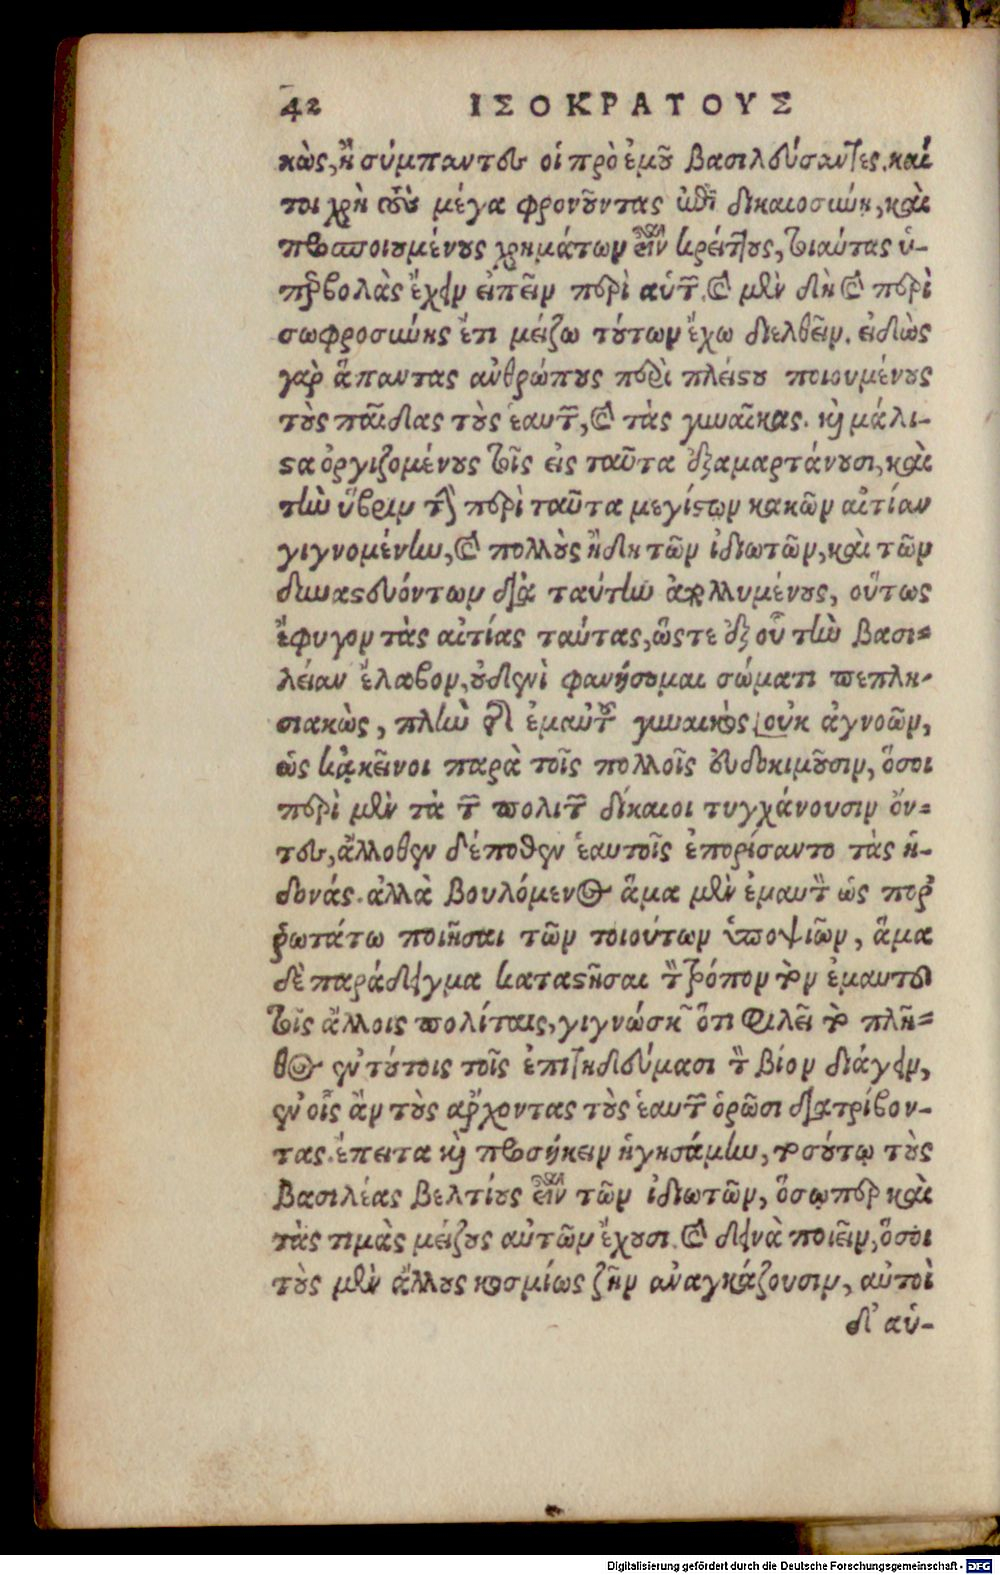 42 ΙΣΟΚΡΑΤΟΥΣ
κὼς, ἢ σύμπαντες οἱ πρὸ ἐμοῦ βασιλεύσαντες. καί
τοι χρὴ τοὺς μέγα φρονοῦντας ἐπὶ δικαιοσύνῃ, καὶ
προσποιουμένους χρημάτων εἶναι κρείττους, τοιαύτας ὑ-
περβολὰς ἔχειν εἰπεῖν περὶ αὑτῶν. καὶ μὲν δὴ καὶ περὶ
σωφροσύνης ἔτι μείζω τούτων ἔχω διελθεῖν. εἰδὼς
γὰρ ἅπαντας ἀνθρώπους περὶ πλείστου ποιουμένους
τοὺς παῖδας τοὺς ἑαυτῶν, καὶ τὰς γυναῖκας. καὶ μάλι-
στα ὀργιζομένους τοῖς εἰς ταῦτα ἐξαμαρτάνουσι, καὶ
τὴν ὕβριν τὴν περὶ ταῦτα μεγίστων κακῶν αἰτίαν
γιγνομένην, καὶ πολλοὺς ἤδη τῶν ἰδιωτῶν, καὶ τῶν
δυναστευόντων διὰ ταύτην ἀπολλυμένους, οὕτως
ἔφυγον τὰς αἰτίας ταύτας, ὥστε ἐξ οὗ τὴν βασι=
λείαν ἔλαβον, οὐδενὶ φανήσομαι σώματι πεπλη-
σιακὼς, πλὴν τῆς ἐμαυτοῦ γυναικὸς οὐκ ἀγνοῶν,
ὡς κἀκεῖνοι παρὰ τοῖς πολλοῖς εὐδοκιμοῦσιν, ὅσοι
περὶ μὲν τὰ τῶν πολιτῶν δίκαιοι τυγχάνουσιν ὄν=
τες, ἄλλοθεν δέποθεν ἑαυτοῖς ἐπορίσαντο τὰς ἡ-
δονάς. ἀλλὰ βουλόμενος ἅμα μὲν ἐμαυτὸν ὡς πορ
ρωτάτω ποιῆσαι τῶν τοιούτων ὑποψιῶν, ἅμα
δὲ παράδειγμα καταστῆσαι τὸν τρόπον τὸν ἐμαυτοῦ
τοῖς ἄλλοις πολίταις, γιγνώσκων ὅτι φιλεῖ τὸ πλῆ=
θος ἐν τούτοις τοῖς ἐπιτηδεύμασι τὸν βίον διάγειν,
ἐν οἷς ἂν τοὺς ἄρχοντας τοὺς ἑαυτῶν ὁρῶσι διατρίβον-
τας. ἔπειτα καὶ προσήκειν ἡγησάμην, τοσούτῳ τοὺς
βασιλέας βελτίους εἶναι τῶν ἰδιωτῶν, ὅσῳπερ καὶ
τὰς τιμὰς μείζους αὐτῶν ἔχουσι. καὶ δεινὰ ποιεῖν, ὅσοι
τοὺς μὲν ἄλλους κοσμίως ζῆν ἀναγκάζουσιν, αὐτοὶ
δ' αὑ-
Digitalisierung gefördert durch die Deutsche Forschungsgemeinschaft - DFG